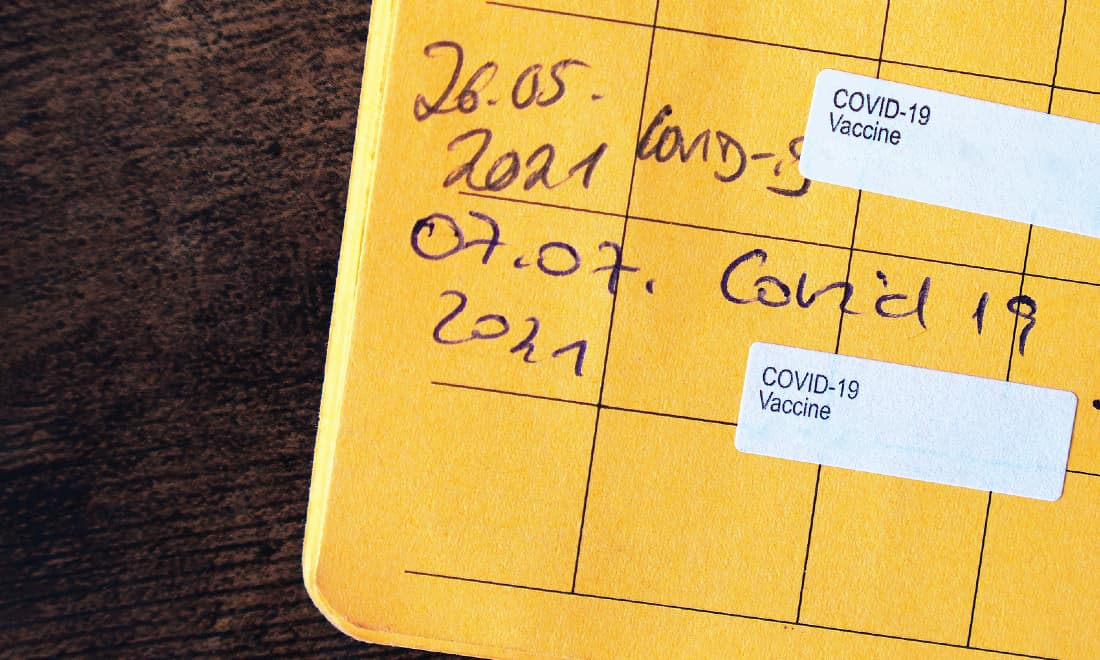 26.05.
2021
Covid-19
COVID-19
Vaccine
07.07.
2021
Covid 19
COVID-19
Vaccine